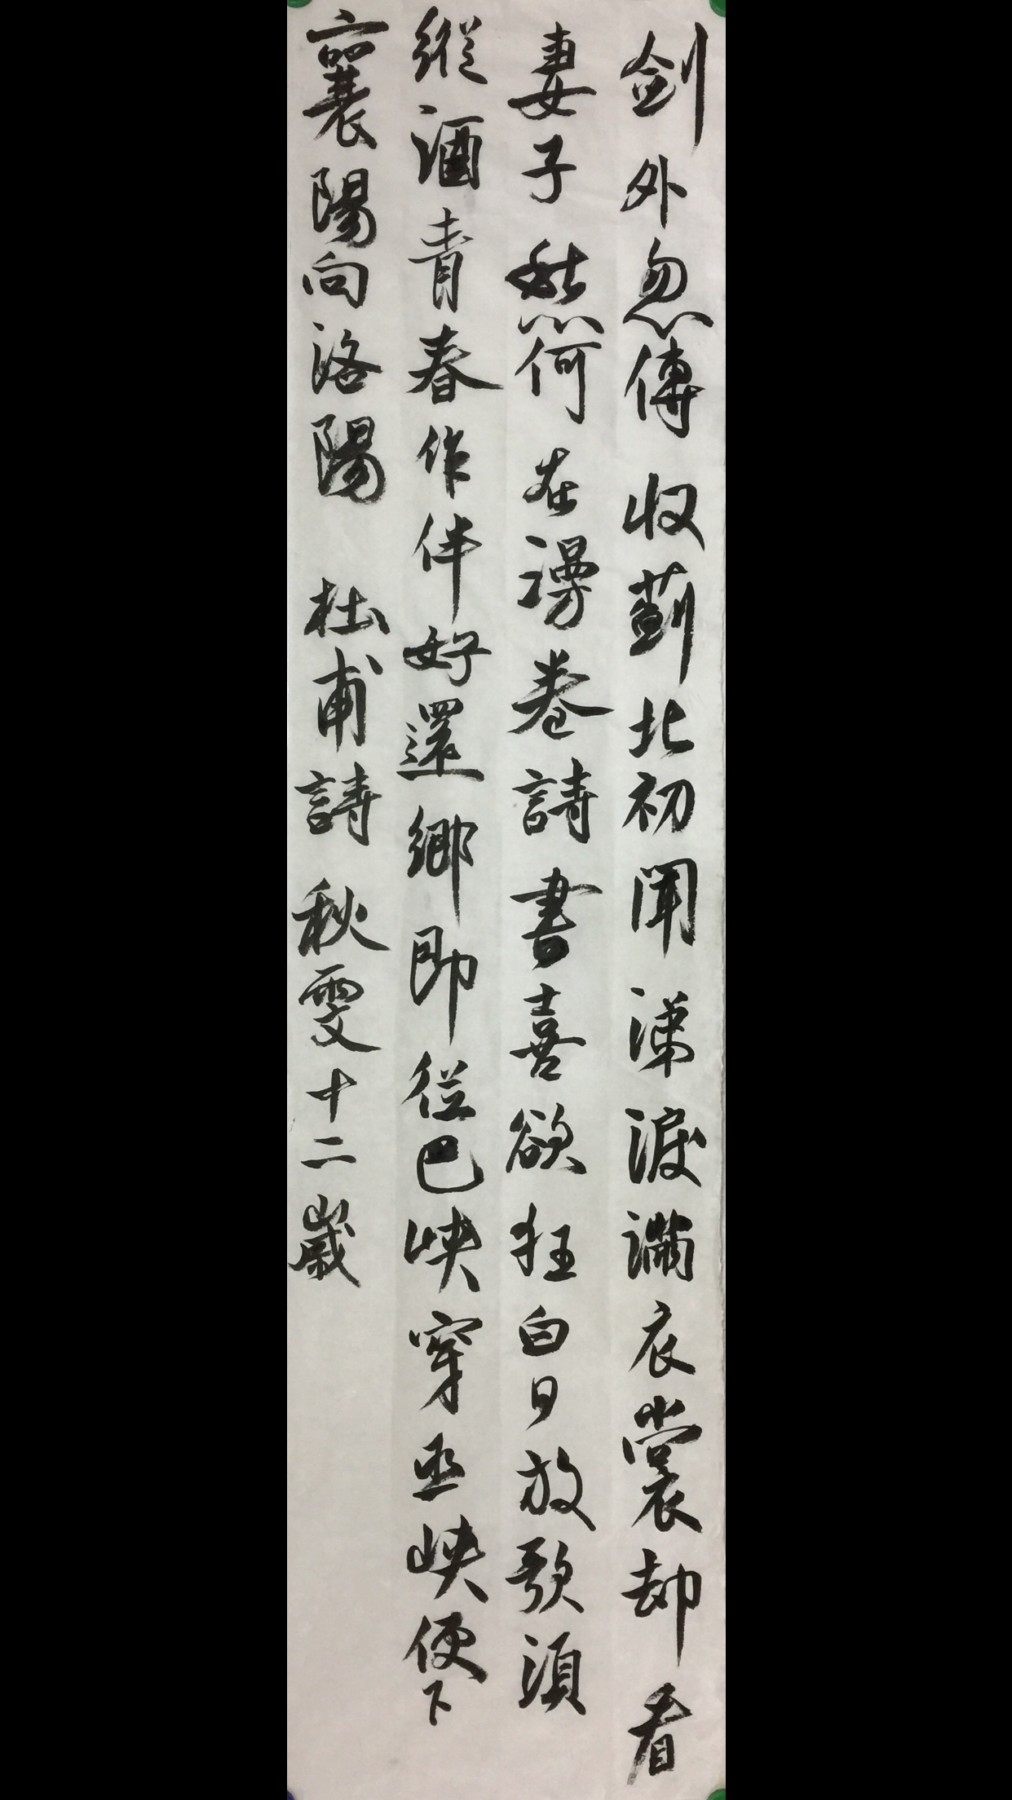 劍外忽傳收薊北初聞涕淚滿衣裳却看
妻子愁何在漫卷詩書喜欲狂白日放歌須
縱酒青春作伴好還鄉即從巴峽穿巫峽便下
襄陽向洛陽 杜甫詩 秋雯十二歲